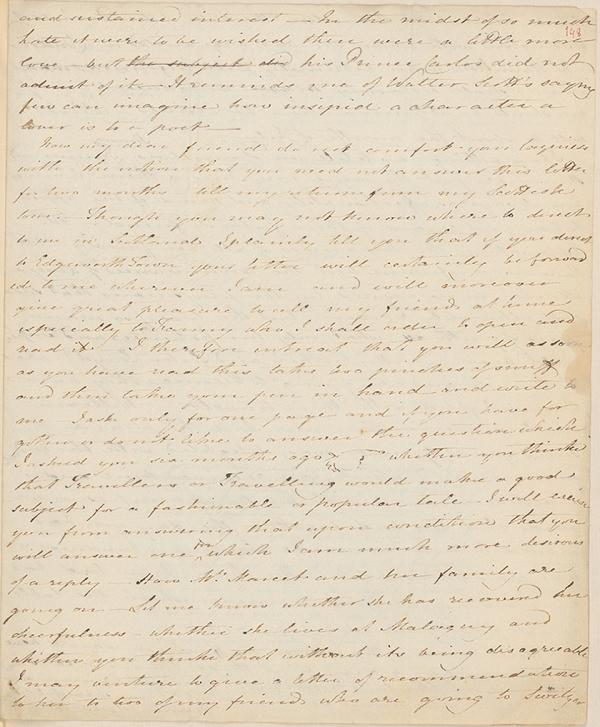 and sustained interest – In the midst of so much
148
hate it were to be wished there were a little more
love – but the subject did his Prince Carlos did not
admit of it – It reminds me of Walter Scott's saying
few can imagine how insipid a character a
lover is to a poet –
Now my dear friend do not comfort your laziness
with the notion that you need not answer this letter
for two months till my return from my Scottish
tour. Though you may not know where to direct
to me in Scotland I plainly tell you that if you direct
to Edgeworth Town your letter will certainly be forward
ed to me wherever I am and will moreover
give great pleasure to all my friends at home
especially to Fanny who I shall order to open and
read it I therefore intreat that you will as soon
as you have read this take two pinches of snuff
and then take your pen in hand and write to
me – I ask only for one page and if you have for
gotten or don't like to answer the question which
I asked you six months ago whether you think
that Travellers or Travelling would make a good
subject for a fashionable or popular tale – I will excuse
you from answering that upon condition that you
will answer one for which I am much more desirous
of a reply – How Mrs. Marcet and her family are
going on – Let me know whether she has recovered her
cheerfulness – whether she lives at Malagny and
whether you think that without its being disagreeable
I may venture to give a letter of recommendation
to her to two of my friends who are going to Switzer